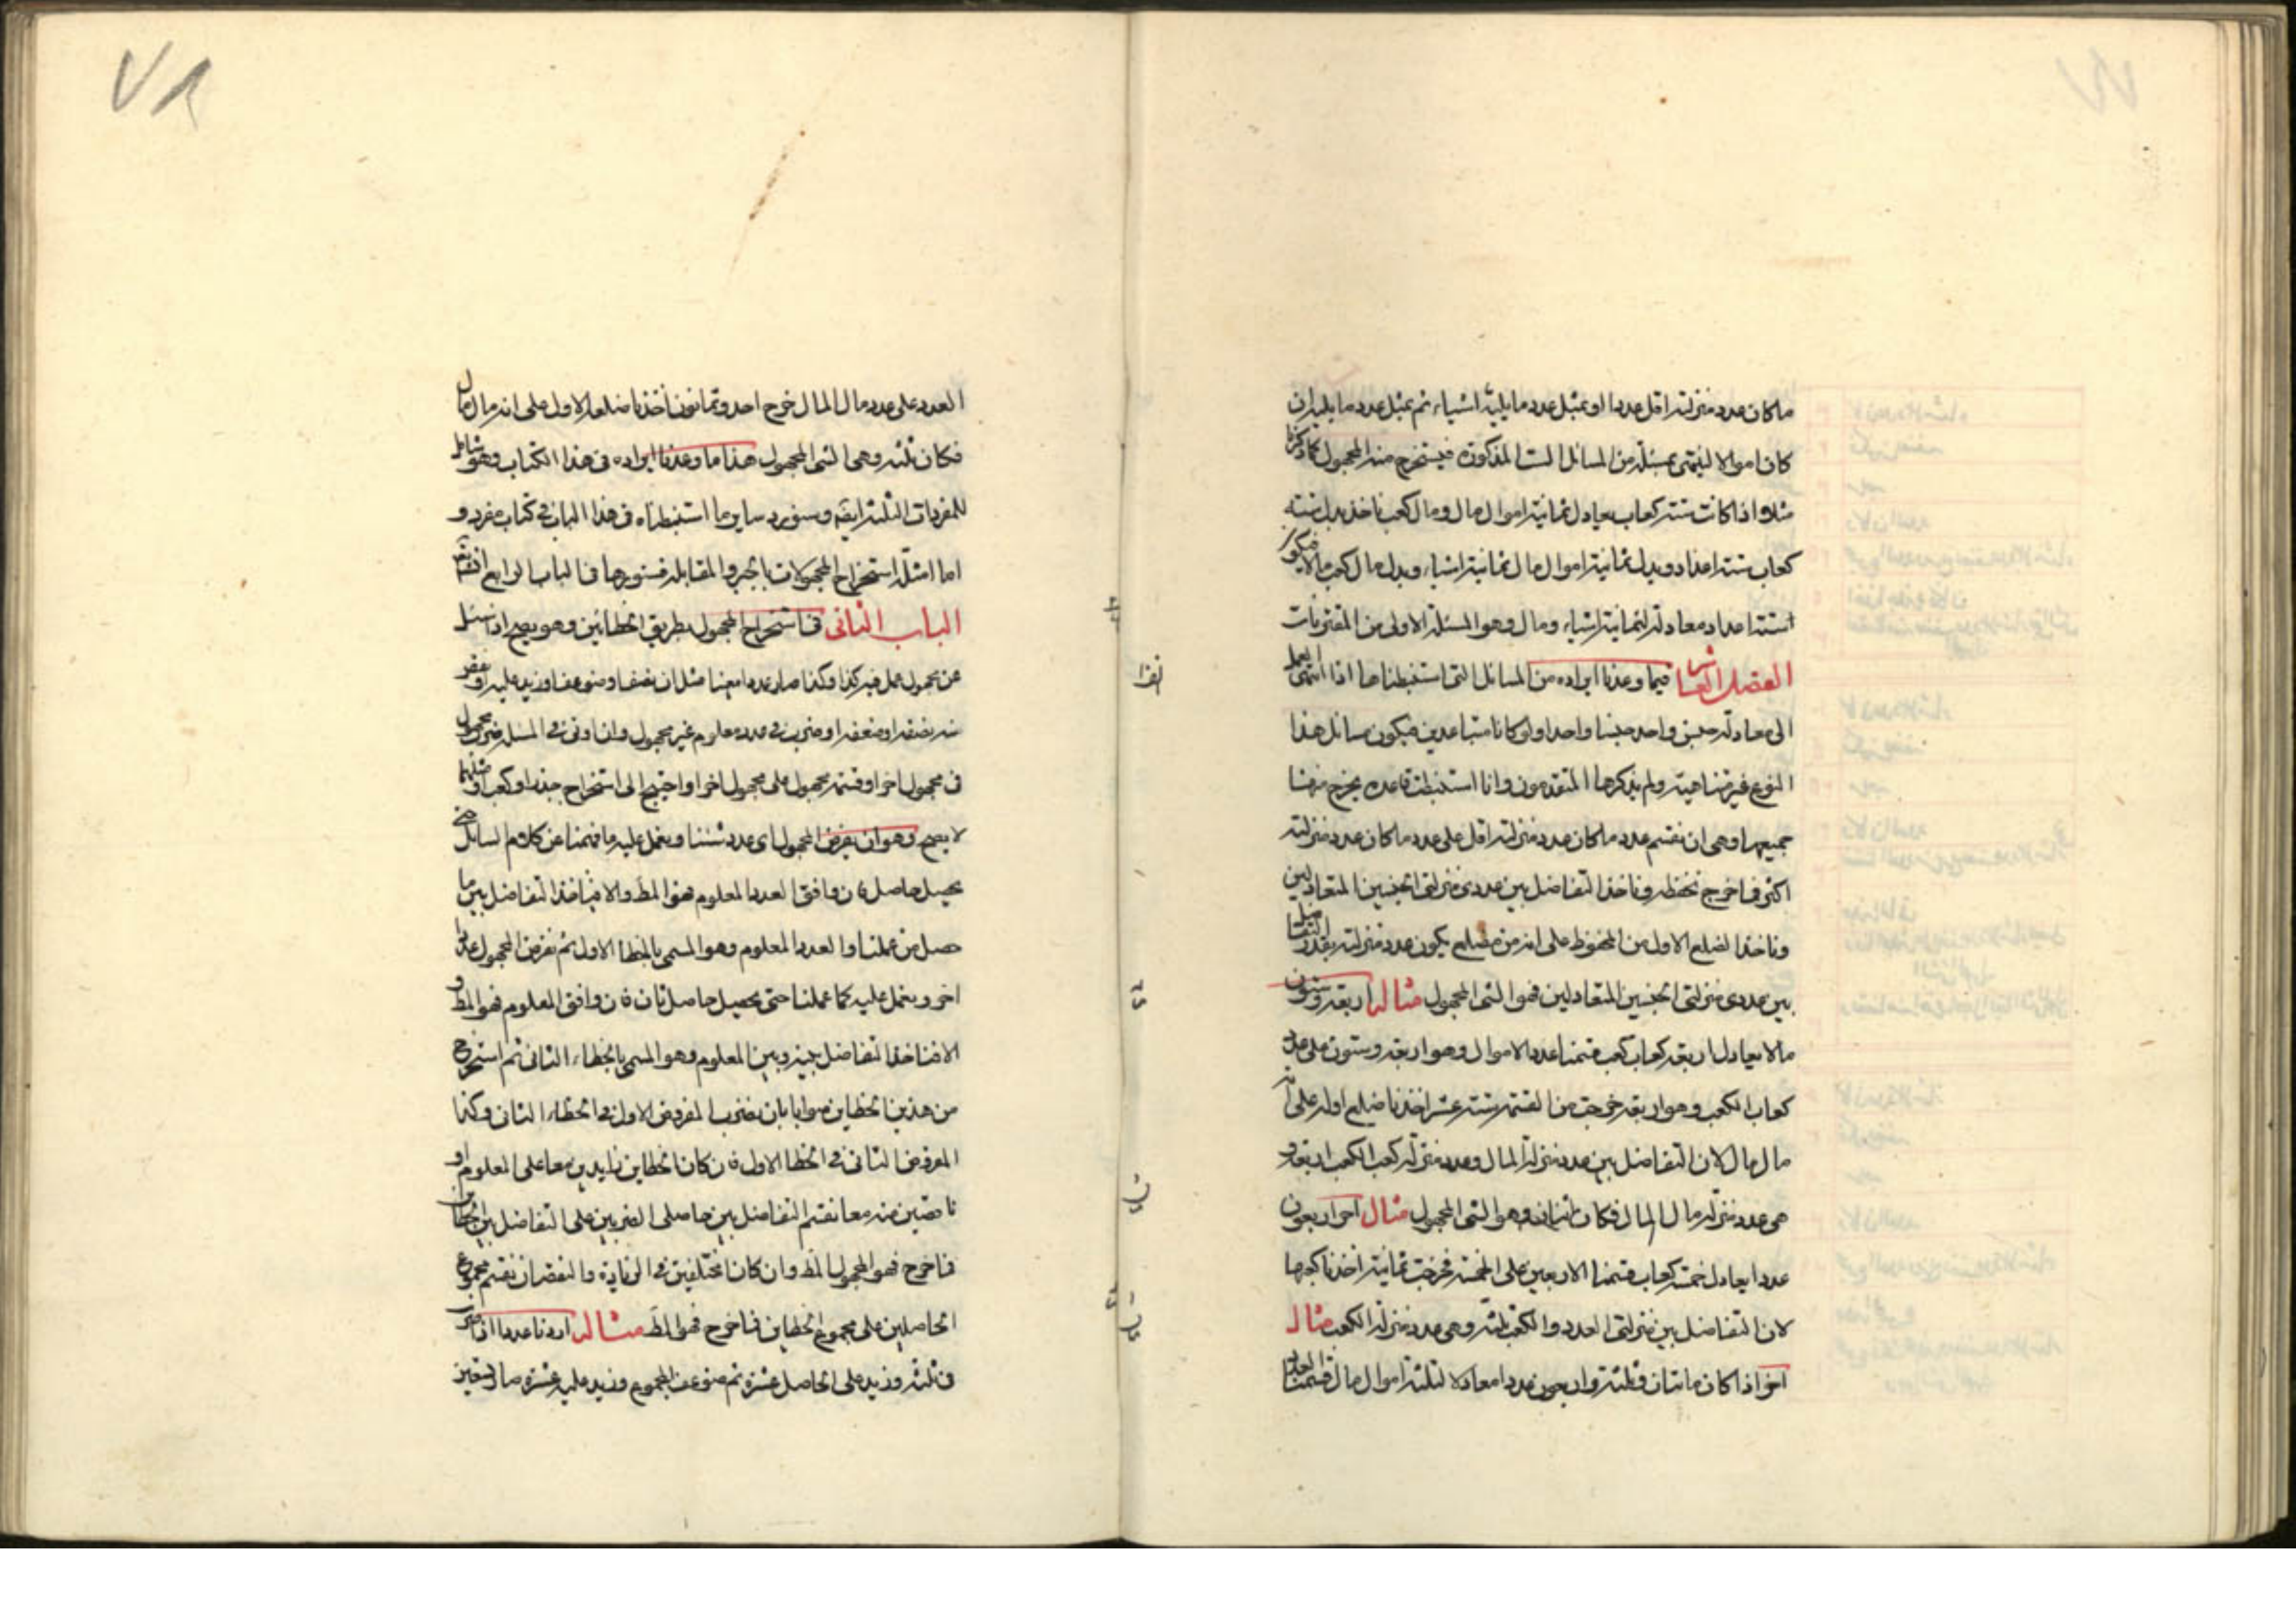 ما كان عدد منزلته اقل عددا او بمثل عدد ما يليه اشياء ثم بمثل عدد ما يليه ان
كان اموالا لينتهى بمسئلة من المسائل الست المذكورة فيستخرج منه المجهول كما ذكرنا
مثلا اذا كانت ستة كعاب يعادل ثمانية اموال مال ومال كعب ناخذ بدل ستة
كعاب ستة اعداد وبدل ثمانية اموال مال ثمانية اشياء وبدل مال كعب مالا فيكون
الستة اعداد معادلة لثمانية اشياء ومال وهو المسئلة الاولى من المقترنات
الفصل العاشر فيما وعدنا ايراده من المسائل التى استنبطناها اذا انتهى العمل
الى معادلة جنس واحد جنسا واحدا ولو كانا متباعدين فيكون مسائل هذا
النوع غير متناهية ولم يذكرها المتقدمون وانا استنبطت قاعدة يخرج منها
جميعها وهى ان نقسم عدد ما كان عدد منزلته اقل على عدد ما كان عدد منزلته
اكثر فما خرج نحفظه وناخذ التفاضل بين عددى منزلتى الجنسين المتعادلين
وناخذ الضلع الاول من المحفوظ على انه من مضلع يكون عدد منزلته بقدر التفاضل
بين عددى منزلتى الجنسين المتعادلين فهو الشى المجهول مثاله اربعة وستون
مالا يعادل اربعة كعاب كعب قسمنا عدد الاموال وهو اربعة وستون على عدد
كعاب الكعب وهو اربعة خرجت من القسمة ستة عشر اخذنا ضلعه الاول على انه
مال مال لان التفاضل بين عدد منزلة المال وعدد منزلة كعب الكعب اربعة و
هى عدد منزلة مال المال فكان اثنان وهو الشى المجهول مثال اخر اربعون
عددا يعادل خمسة كعاب قسمنا الاربعين على الخمسة فخرجت ثمانية اخذنا كعبها
لان التفاضل بين منزلتى العدد والكعب ثلثة وهى عدد منزلة الكعب مثال
اخر اذا كان مائتان وثلثة واربعون عددا معادلا لثلثة اموال مال قسمنا العدد
العدد على عدد مال المال خرج احد وثمانون اخذنا ضلعه الاول على انه مال مال
فكان ثلثة وهى الشى المجهول هذا ما وعدنا ايراده فى هذا الكتاب وهو شامل
للمفردات الثلثة ايضا وسنورد ساير ما استنبطناه فى هذا الباب فى كتاب مفرد و
اما امثلة استخراج المجهولات بالجبر والمقابلة فسنوردها فى الباب الرابع
الباب الثانى فى استخراج المجهول بطريق الخطائين وهو يصح اذا سئل
عن مجهول عمل فيه كذا وكذا صار عددا معينا مثل ان نصف او ضوعف او زيد عليه او نقص
منه نصفه او ضعفه او ضرب فى عدد معلوم غير مجهول وان وقع فى المسئلة ضرب مجهول
فى مجهول اخر او قسمة مجهول على مجهول اخر او احتيج الى استخراج جذر او كعب او مثلهما
لا يصح وهو ان نفرض المجهول اى عدد شئنا ونعمل عليه ما فهمنا عن كلام السائل حتى
يحصل حاصل فان وافق العدد المعلوم فهو المط والا فناخذ التفاضل بين ما
حصل من عملنا والعدد المعلوم وهو المسمى بالخطا الاول ثم نفرض المجهول عددا
اخر ونعمل عليه كما عملنا حتى يحصل حاصل ثان فان وافق المعلوم فهو المط و
الا فناخذ التفاضل بينه وبين المعلوم وهو المسمى بالخطاء الثانى ثم استخرج
من هذين الخطاين صوابا بان نضرب المفروض الاول فى الخطاء الثانى وكذا
المفروض الثانى فى الخطا الاول فان كان الخطاين زايدين معا على المعلوم او
ناقصين منه معا نقسم التفاضل بين حاصلى الضربين على التفاضل بين الخطاين
فما خرج فهو المجهول المط وان كان مختلفين فى الزيادة والنقصان نقسم مجموع
الحاصلين على مجموع الخطاين فما خرج فهو المط مثاله اردنا عددا اذا ضرب
فى ثلثة وزيد على الحاصل عشرة ثم ضوعف المجموع وزيد عليه عشرة صار تسعين